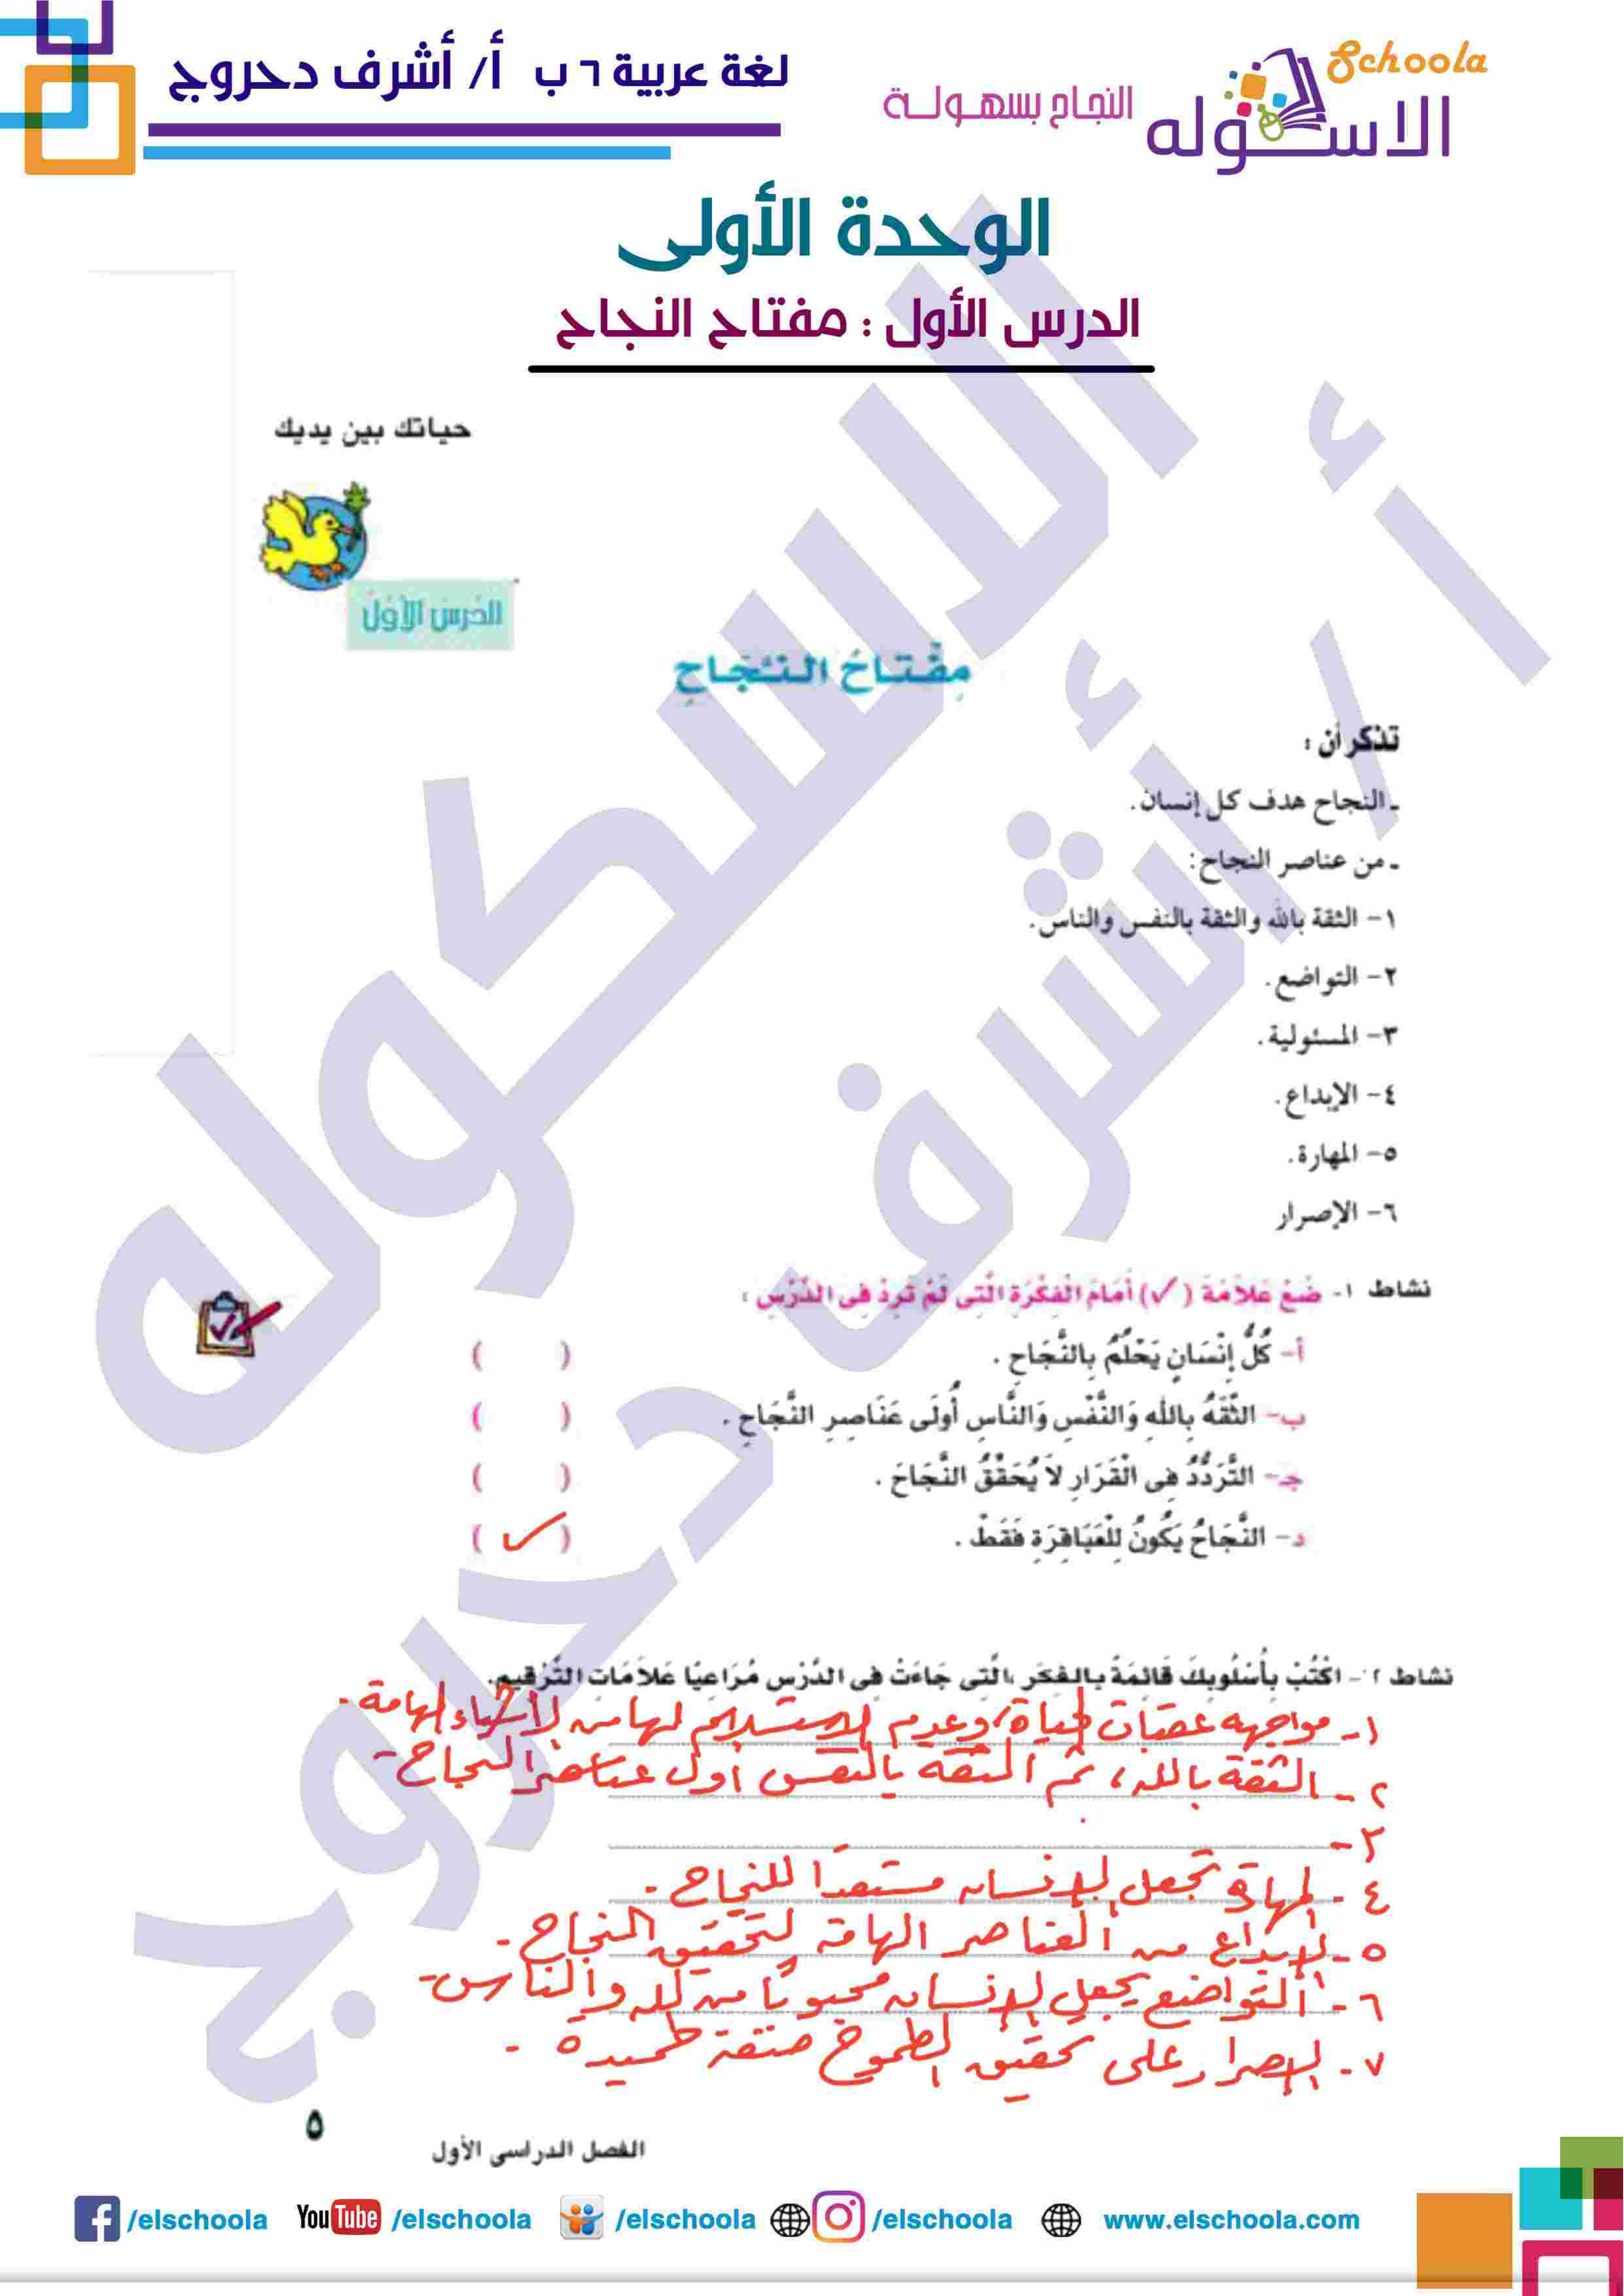 لغة عربية ٦ ب أ/ أشرف دحروج
Schoola
الاسكوله
النجاح بسهولة
الوحدة الأولى
الدرس الأول : مفتاح النجاح
حياتك بين يديك
الدرس الأول
مِفْتَاحُ النَّجَاحِ
تذكر أن :
ـ النجاح هدف كل إنسان.
ـ من عناصر النجاح:
١- الثقة بالله والثقة بالنفس والناس.
٢- التواضع.
٣- المسئولية.
٤- الإبداع.
٥- المهارة.
٦- الإصرار
نشاط ١- ضَعْ عَلاَمَةَ (✓) أَمَامَ الْفِكْرَةِ الَّتِى لَمْ تَرِدْ فِى الدَّرْسِ :
أ- كُلُّ إِنْسَانٍ يَحْلُمُ بِالنَّجَاحِ . ( )
ب- الثِّقَةُ بِاللهِ وَالنَّفْسِ وَالنَّاسِ أُولَى عَنَاصِرِ النَّجَاحِ . ( )
جـ- التَّرَدُّدُ فِى الْقَرَارِ لاَ يُحَقِّقُ النَّجَاحَ . ( )
د- النَّجَاحُ يَكُونُ لِلْعَبَاقِرَةِ فَقَطْ . ( ✓ )
نشاط ٢- اكْتُبْ بِأُسْلُوبِكَ قَائِمَةً بِالْفِكَرِ الَّتِى جَاءَتْ فِى الدَّرْسِ مُرَاعِيًا عَلاَمَاتِ التَّرْقِيمِ.
١- مواجهه عقبات الحياة، وعدم الاستسلام لها من الأشياء الهامة.
٢- الثقة بالله، ثم الثقة بالنفس أول عناصر النجاح-
٣-
٤- المهارة تجعل الإنسان مستعدًا للنجاح.
٥- الإبداع من العناصر الهامة لتحقيق النجاح-
٦- التواضع يجعل الإنسان محبوبًا من الله والناس-
٧- الإصرار على تحقيق الطموح صفة حميدة .
٥
الفصل الدراسى الأول
/elschoola YouTube /elschoola /elschoola /elschoola www.elschoola.com
الاسكوله
أ / أشرف دحروج